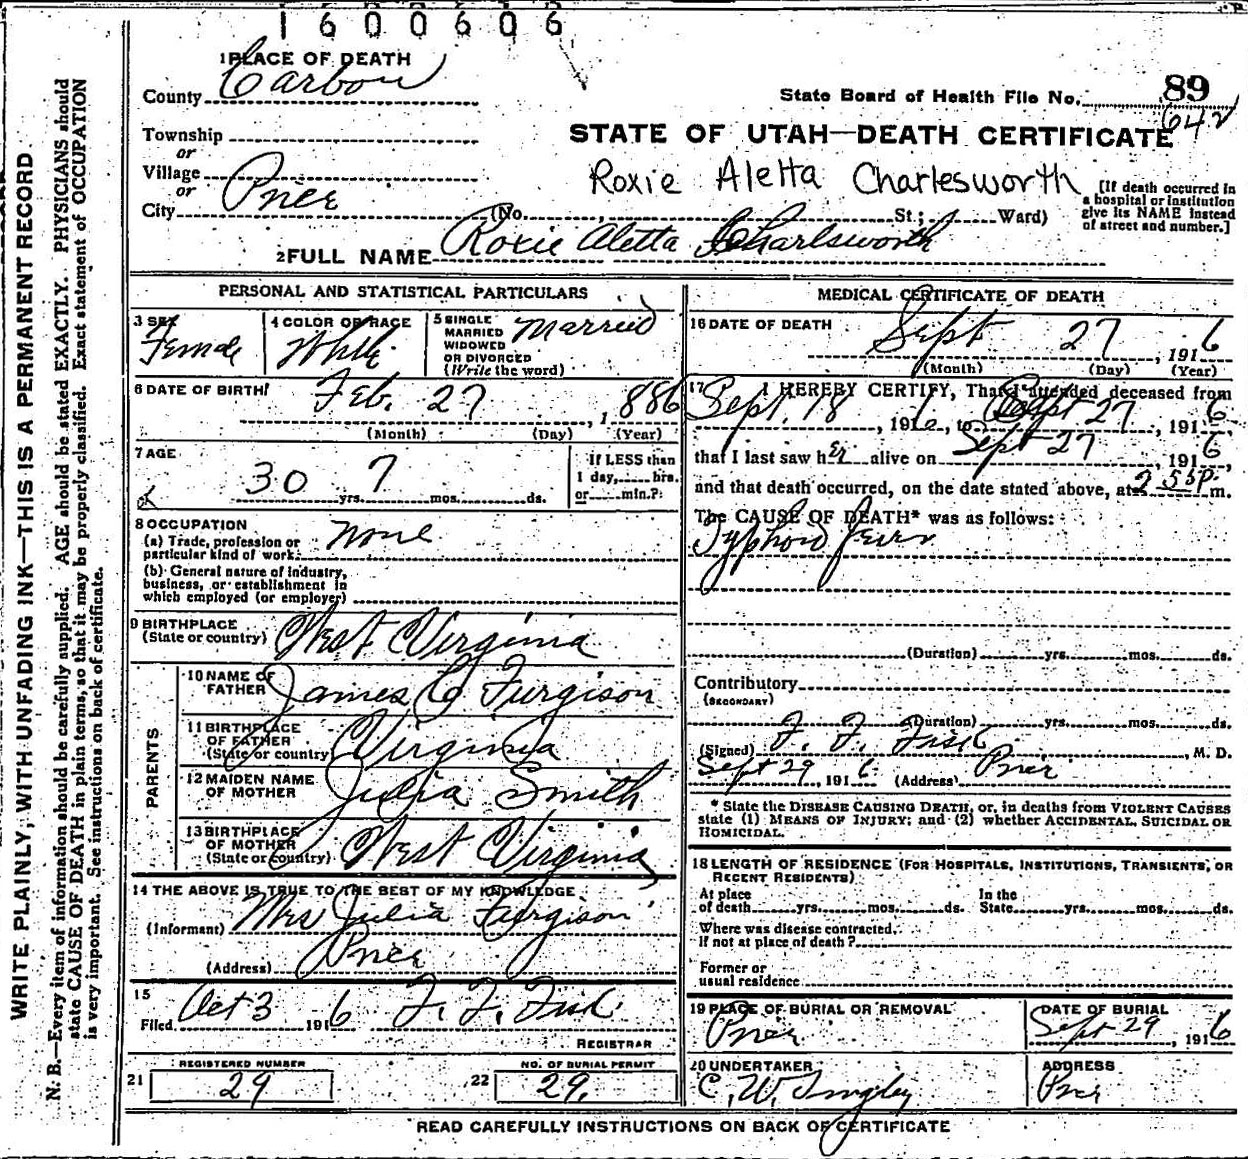 1600606
1 PLACE OF DEATH
County Carbon
State Board of Health File No. 89
642
Township
or
Village
or
City Price
STATE OF UTAH—DEATH CERTIFICATE
Roxie Aletta Charlesworth
(No. , St.; Ward)
[If death occurred in
a hospital or institution
give its NAME instead
of street and number.]
2 FULL NAME Roxie Aletta Charlsworth
PERSONAL AND STATISTICAL PARTICULARS
3 SEX
Female
4 COLOR OR RACE
White
5 SINGLE
MARRIED
WIDOWED
OR DIVORCED
(Write the word)
Married
6 DATE OF BIRTH
Feb. 27, 1886
(Month) (Day) (Year)
7 AGE
30 yrs. 7 mos. ds.
If LESS than
1 day, hrs.
or min.?
8 OCCUPATION
(a) Trade, profession or
particular kind of work
None
(b) General nature of industry,
business, or establishment in
which employed (or employer)
9 BIRTHPLACE
(State or country)
West Virginia
PARENTS
10 NAME OF
FATHER
James C Furgison
11 BIRTHPLACE
OF FATHER
(State or country)
Virginia
12 MAIDEN NAME
OF MOTHER
Julia Smith
13 BIRTHPLACE
OF MOTHER
(State or country)
West Virginia
14 THE ABOVE IS TRUE TO THE BEST OF MY KNOWLEDGE
(Informant) Mrs Julia Furgison
(Address) Price
15
Filed Oct 3 1916 F. F. Fisk
REGISTRAR
REGISTERED NUMBER
21 29
NO. OF BURIAL PERMIT
22 29.
MEDICAL CERTIFICATE OF DEATH
16 DATE OF DEATH
Sept 27, 1916
(Month) (Day) (Year)
17 I HEREBY CERTIFY, That I attended deceased from
Sept. 18, 1916, to Sept 27, 1916
that I last saw her alive on Sept 27, 1916,
and that death occurred, on the date stated above, at 2 55 P. m.
The CAUSE OF DEATH* was as follows:
Typhoid fever
(Duration) yrs. mos. ds.
Contributory
(SECONDARY)
(Duration) yrs. mos. ds.
(Signed) F. F. Fisk, M. D.
Sept 29, 1916 (Address) Price
* State the DISEASE CAUSING DEATH, or, in deaths from VIOLENT CAUSES
state (1) MEANS OF INJURY; and (2) whether ACCIDENTAL, SUICIDAL OR
HOMICIDAL.
18 LENGTH OF RESIDENCE (FOR HOSPITALS, INSTITUTIONS, TRANSIENTS, OR
RECENT RESIDENTS)
At place
of death yrs. mos. ds.
In the
State yrs. mos. ds.
Where was disease contracted,
If not at place of death?
Former or
usual residence
19 PLACE OF BURIAL OR REMOVAL
Price
DATE OF BURIAL
Sept 29, 1916
20 UNDERTAKER
C. W.
ADDRESS
Price
READ CAREFULLY INSTRUCTIONS ON BACK OF CERTIFICATE
WRITE PLAINLY, WITH UNFADING INK—THIS IS A PERMANENT RECORD
N. B.—Every item of information should be carefully supplied. AGE should be stated EXACTLY. PHYSICIANS should
state CAUSE OF DEATH in plain terms, so that it may be properly classified. Exact statement of OCCUPATION
is very important. See instructions on back of certificate.